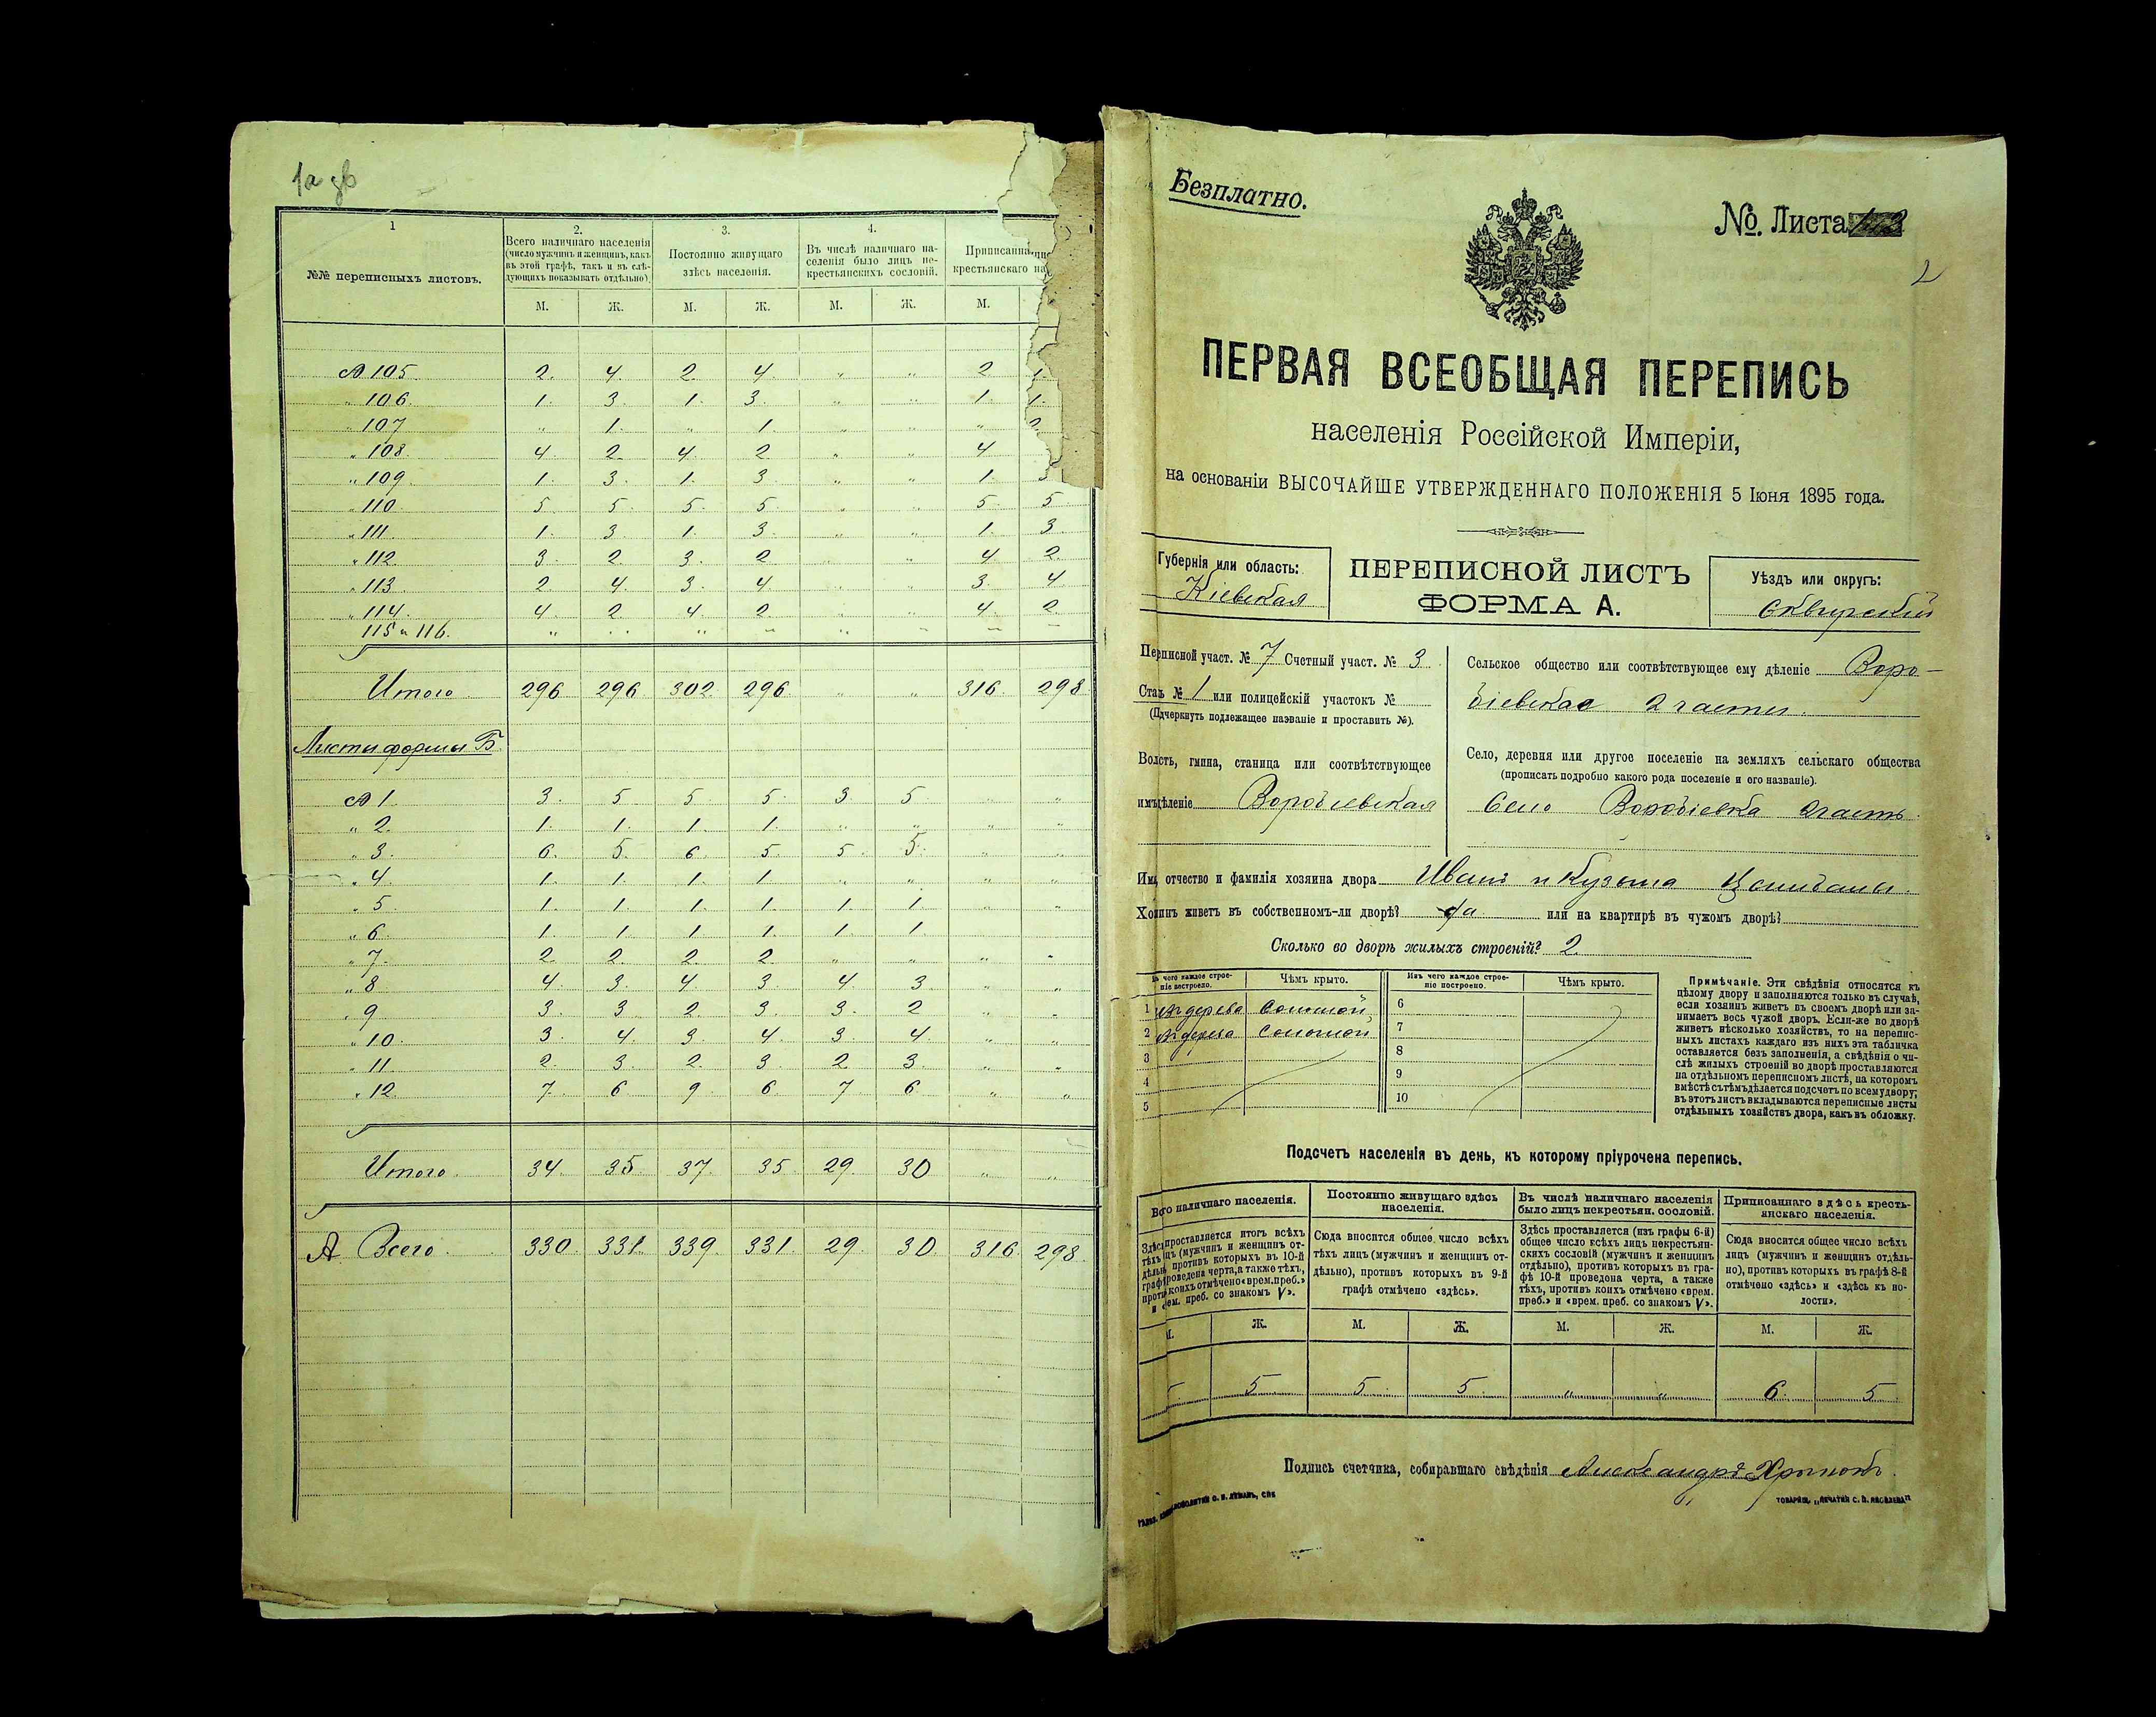 1а дв
1
2.
3.
4.
№№ переписныхъ листовъ.
Всего наличнаго населенія
(число мужчинъ и женщинъ, какъ
въ этой графѣ, такъ и въ слѣ-
дующихъ показывать отдѣльно)
Постоянно живущаго
здѣсь населенія.
Въ числѣ наличнаго на-
селенія было лицъ не-
крестьянскихъ сословій.
Приписанна
крестьянскаго на
М. Ж. М. Ж. М. Ж. М.
№ 105. 2. 4. 2. 4. " " 2.
" 106. 1. 3. 1. 3. " " 1. 1.
" 107 " 1. " 1. " " "
" 108. 4 2. 4. 2 " " 4
" 109. 1. 3. 1. 3. " " 1. 3
" 110. 5. 5. 5. 5. " " 5. 5.
" 111. 1. 3. 1. 3. " " 1. 3.
" 112. 3. 2. 3. 2. " " 4 2.
" 113. 2. 4. 3. 4. " " 3. 4.
" 114. 4. 2. 4. 2. " " 4. 2.
115 и 116. " " " " " " " "
Итого 296. 296. 302. 296. " " 316. 298
Листы формы Б.
№ 1. 3. 5 5. 5. 3. 5. " "
" 2. 1. 1. 1. 1. " " " "
" 3. 6. 5. 6. 5. 5. 5. " "
" 4. 1. 1. 1. 1. " " " "
" 5. 1. 1. 1. 1. 1. 1. " "
" 6. 1. 1. 1. 1. 1. 1.
" 7. 2. 2. 2. 2. " " " "
" 8 4. 3. 4. 3. 4. 3. " "
" 9 3. 3. 2. 3. 3. 2 " "
" 10. 3. 4. 3. 4. 3. 4. " "
" 11. 2. 3. 2. 3. 2. 3. " "
" 12. 7. 6 9 6. 7 6 " "
Итого. 34. 35. 37. 35. 29. 30 " "
А Всего. 330. 331. 339. 331. 29. 30. 316. 298.
Безплатно.
№. Листа
2
ПЕРВАЯ ВСЕОБЩАЯ ПЕРЕПИСЬ
населенія Россійской Имперіи,
на основаніи ВЫСОЧАЙШЕ УТВЕРЖДЕННАГО ПОЛОЖЕНІЯ 5 Іюня 1895 года.
Губернія или область:
Кіевская
ПЕРЕПИСНОЙ ЛИСТЪ
ФОРМА А.
Уѣздъ или округъ:
Сквирскій
Переписной участ. № 7 Счетный участ. № 3.
Станъ № 1 или полицейскій участокъ №
(Подчеркнуть подлежащее названіе и проставить №).
Волость, гмина, станица или соотвѣтствующее
имъ дѣленіе Воробіевская
Сельское общество или соотвѣтствующее ему дѣленіе Воро-
біевкас 2 части.
Село, деревня или другое поселеніе на земляхъ сельскаго общества
(прописать подробно какого рода поселеніе и его названіе).
Село Воробіевка 2 часть.
Имя, отчество и фамилія хозяина двора Иванъ и Кузьма
Хозяинъ живетъ въ собственномъ-ли дворѣ? да или на квартирѣ въ чужомъ дворѣ?
Сколько во дворѣ жилыхъ строеній? 2.
Изъ чего каждое строе-
ніе построено.
Чѣмъ крыто.
Изъ чего каждое строе-
ніе построено.
Чѣмъ крыто.
1 изъ дерева Соломой 6
2 изъ дерева Соломой 7
3 8
4 9
5 10
Примѣчаніе. Эти свѣдѣнія относятся къ
цѣлому двору и заполняются только въ случаѣ,
если хозяинъ живетъ въ своемъ дворѣ или за-
нимаетъ весь чужой дворъ. Если-же во дворѣ
живетъ нѣсколько хозяйствъ, то на перепис-
ныхъ листахъ каждаго изъ нихъ эта табличка
оставляется безъ заполненія, а свѣдѣнія о чи-
слѣ жилыхъ строеній во дворѣ проставляются
на отдѣльномъ переписномъ листѣ, на которомъ
вмѣстѣ съ тѣмъ дѣлается подсчетъ по всему двору;
въ этотъ листъ вкладываются переписные листы
отдѣльныхъ хозяйствъ двора, какъ въ обложку.
Подсчетъ населенія въ день, къ которому пріурочена перепись.
Всего наличнаго населенія.
Здѣсь проставляется итогъ всѣхъ
тѣхъ лицъ (мужчинъ и женщинъ от-
дѣльно), противъ которыхъ въ 10-й
графѣ проведена черта, а также тѣхъ,
противъ коихъ отмѣчено «врем. преб.»
и «врем. преб. со знакомъ V».
Постоянно живущаго здѣсь
населенія.
Сюда вносится общее число всѣхъ
тѣхъ лицъ (мужчинъ и женщинъ от-
дѣльно), противъ которыхъ въ 9-й
графѣ отмѣчено «здѣсь».
Въ числѣ наличнаго населенія
было лицъ некрестьян. сословій.
Здѣсь проставляется (изъ графы 6-й)
общее число всѣхъ лицъ некрестьян-
скихъ сословій (мужчинъ и женщинъ
отдѣльно), противъ которыхъ въ гра-
фѣ 10-й проведена черта, а также
тѣхъ, противъ коихъ отмѣчено «врем.
преб.» и «врем. преб. со знакомъ V».
Приписаннаго здѣсь кресть-
янскаго населенія.
Сюда вносится общее число всѣхъ
лицъ (мужчинъ и женщинъ отдѣль-
но), противъ которыхъ въ графѣ 8-й
отмѣчено «здѣсь» и «здѣсь къ во-
лости».
М. Ж. М. Ж. М. Ж. М. Ж.
5 5 5. 5. " " 6. 5
Подпись счетчика, собиравшаго свѣдѣнія Александръ
ТОВАРИЩ. „ПЕЧАТНЯ С. П. ЯКОВЛЕВА“